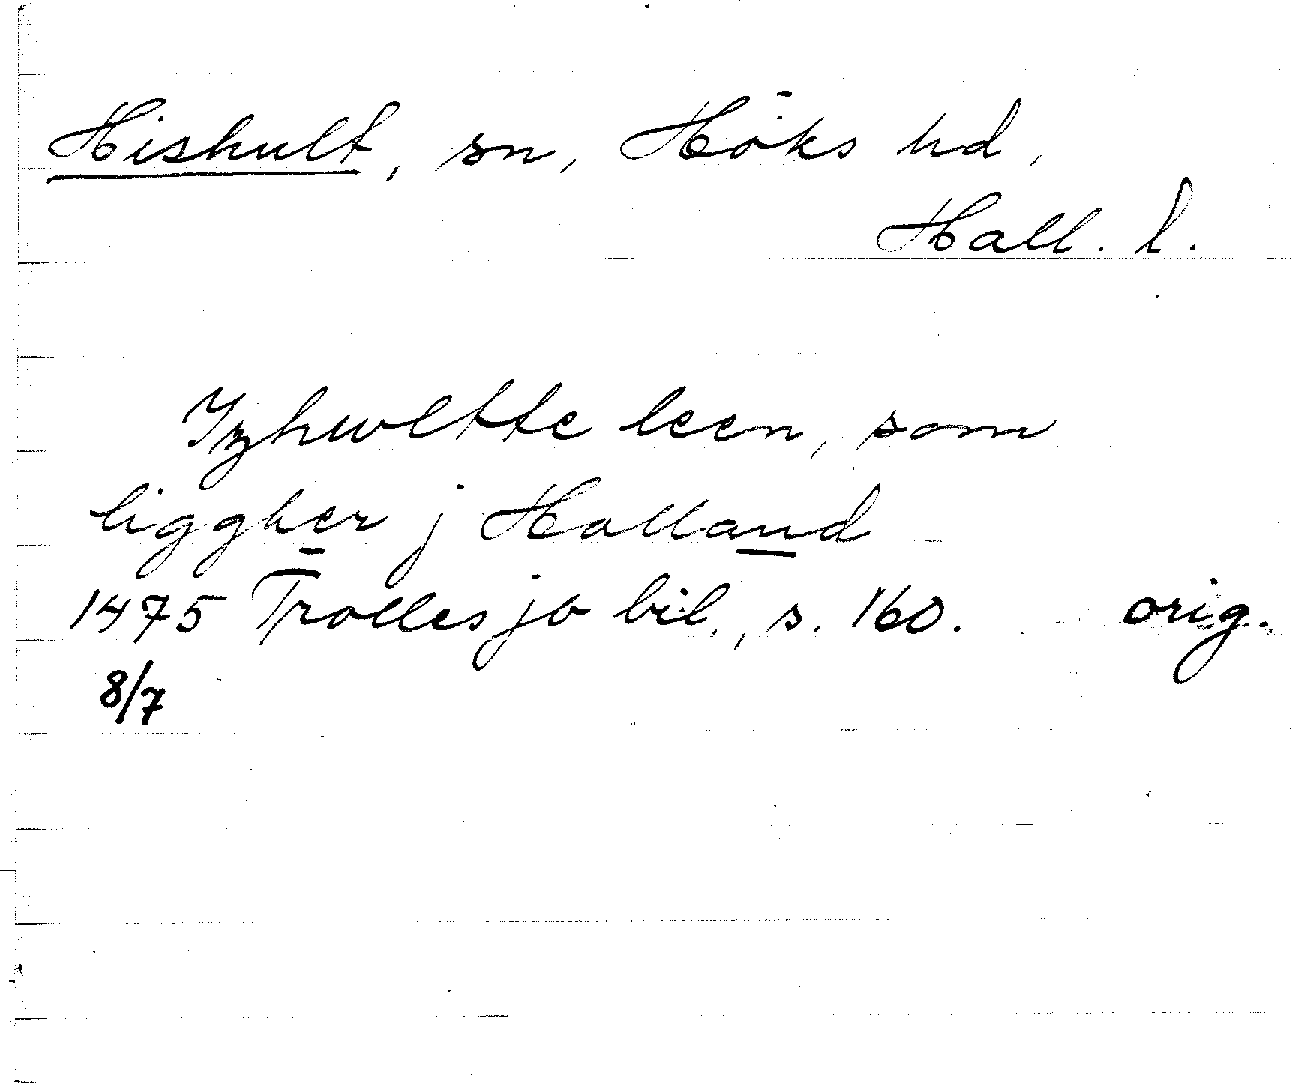 Hishult, sn, Höks hd,
Hall. l.
Yzhwltte leen, som
liggher j Halland
1475 Trolles jb bil., s. 160. orig.
8/7